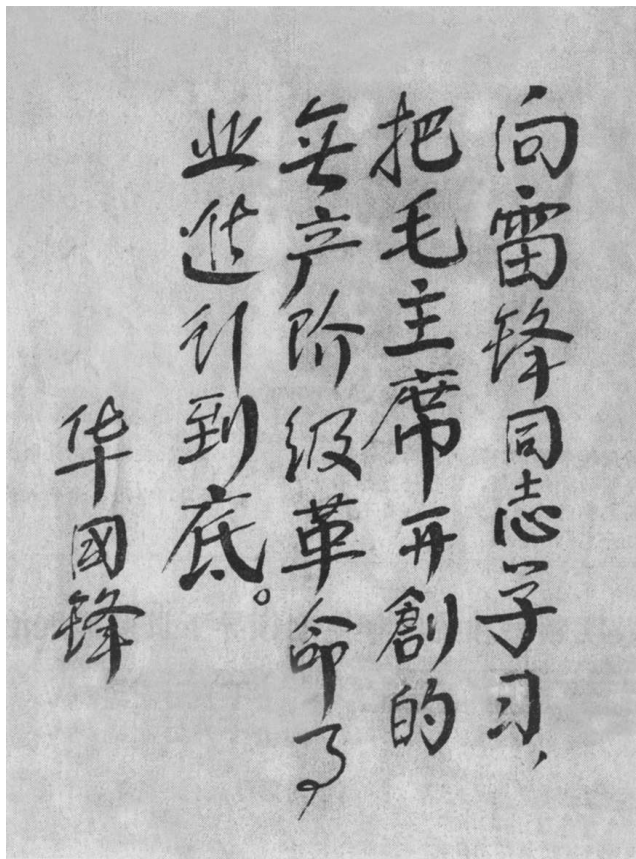 向雷锋同志学习，
把毛主席开創的
無产阶级革命事
业進行到底。
华國锋